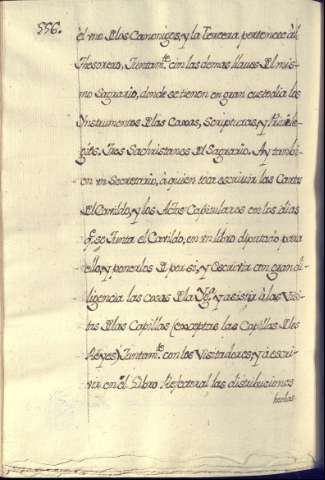 556.
el uno de los Canonigos, y la Tercera pertenece àl
Thesorero, Juntamte. con las demas llaves del mis-
mo Sagrario, donde se tienen en gran custodia los
Instrumentos de las Casas, Scripturas, y Privile-
gios. Tres Sachristanes del Sagrario. Ay tambi-
en un Secretario, à quien toca escriuir las Cartas
del Cavildo, y los Actos Capitulares en los dias
q. se Junta el Cavildo, en un libro diputado para
ello, y ponerlos de por si, y Escrivir con gran di-
ligencia las cosas de la Yga. y asistir à las Visi-
tas de las Capillas (exceptas las Capillas de los
Reyes) Juntamte. con los Visitadores, y à escri-
vir en el Libro Refectoral las distribuciones
hechas